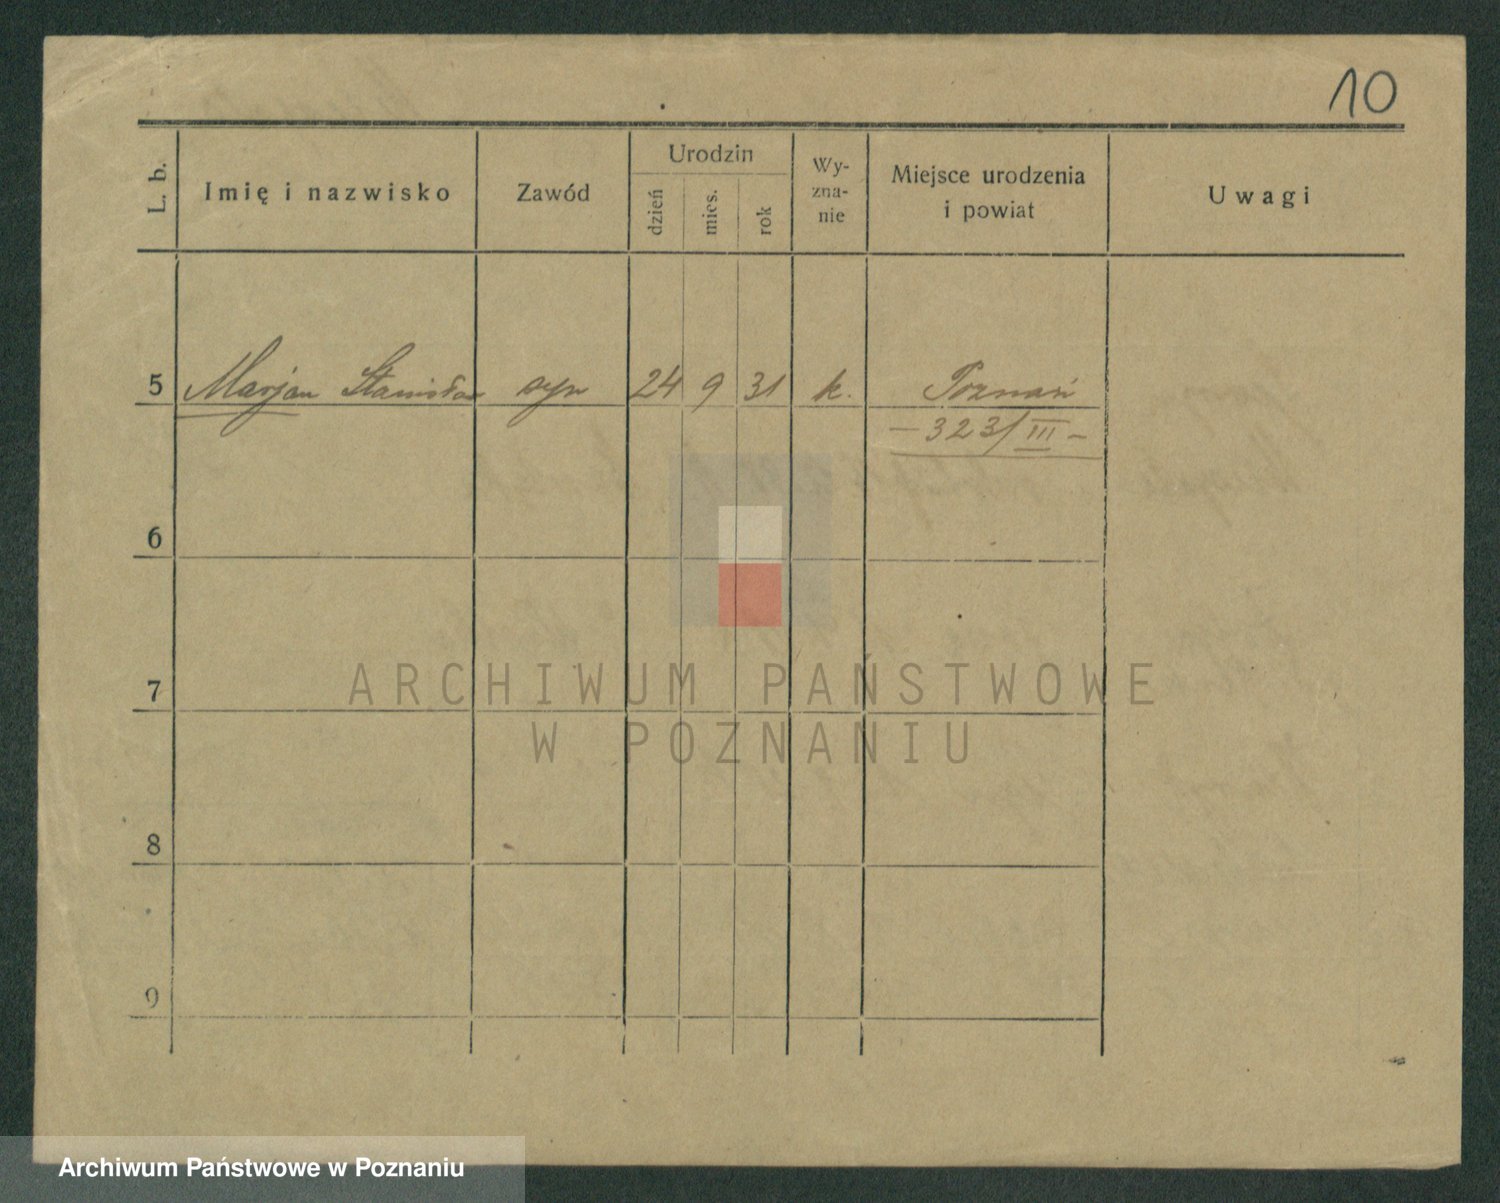 10
L. b.
Imię i nazwisko
Zawód
Urodzin
dzień
mies.
rok
Wy-
zna-
nie
Miejsce urodzenia
i powiat
Uwagi
5 Marjan Stanisław syn 24 9 31 k. Poznań
- 323/III -
6
7
8
9
ARCHIWUM PAŃSTWOWE
W POZNANIU
Archiwum Państwowe w Poznaniu